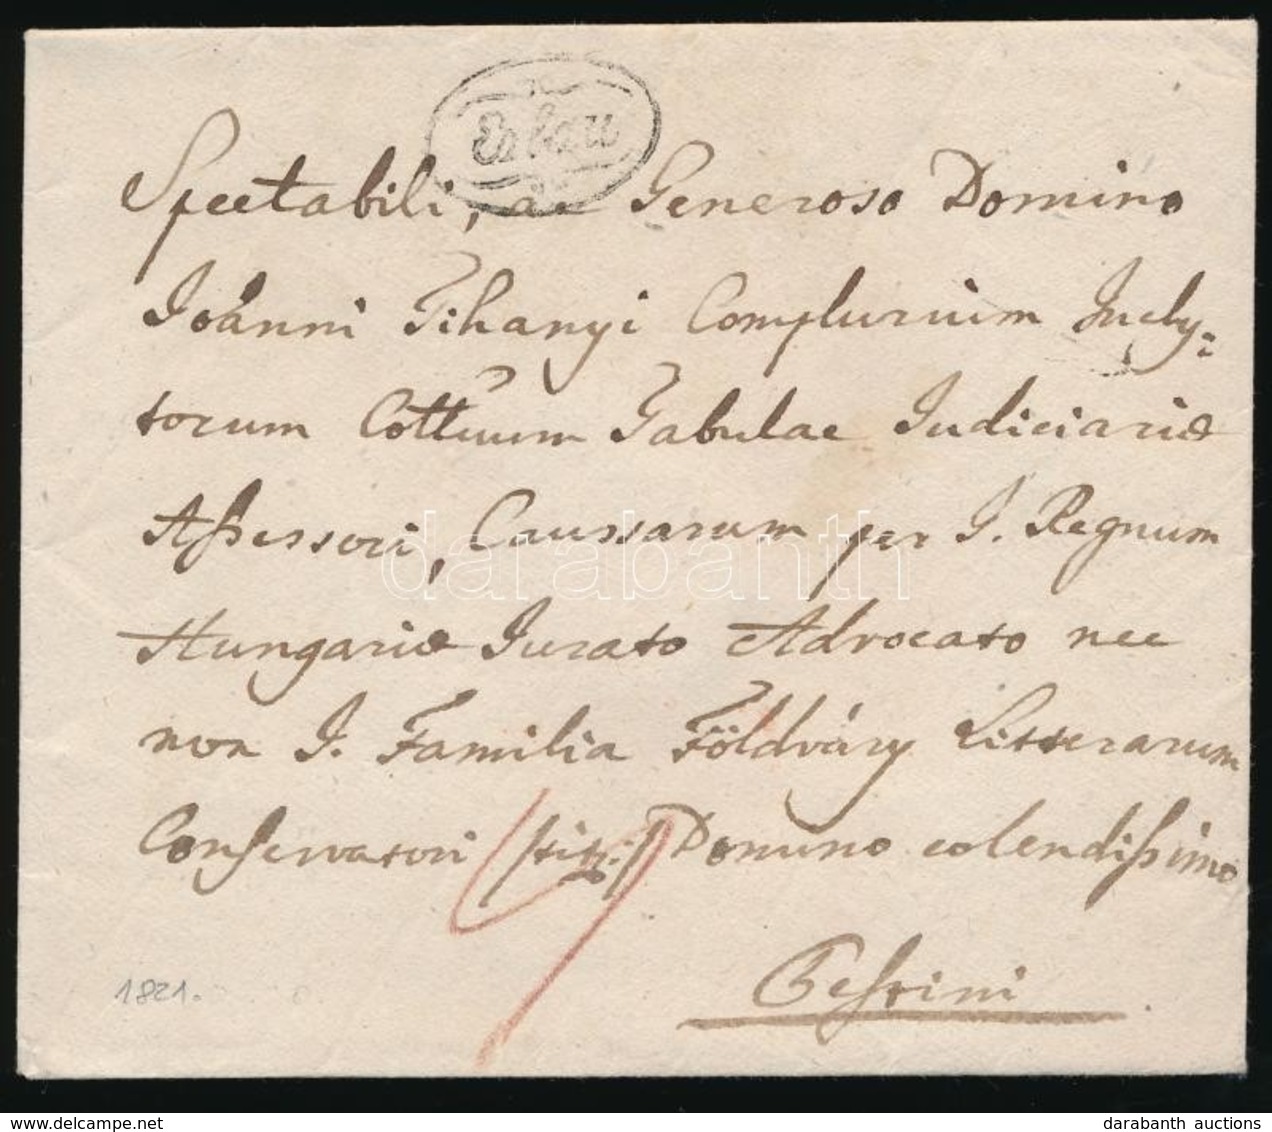 Erlau
Spectabili, ac Generoso Domino
Joánni Tihanyi Complurium Incly-
torum Cottuum Tabulae Judiciariæ
Assessori, Caussarum per I. Regnum
Hungariæ Jurato Advocato nec
non I. Familia Földváry Litterarum
Conservatori /: titt :/ Domino colendissimo
Pestini
1821.
darabanth
darabanth auctions